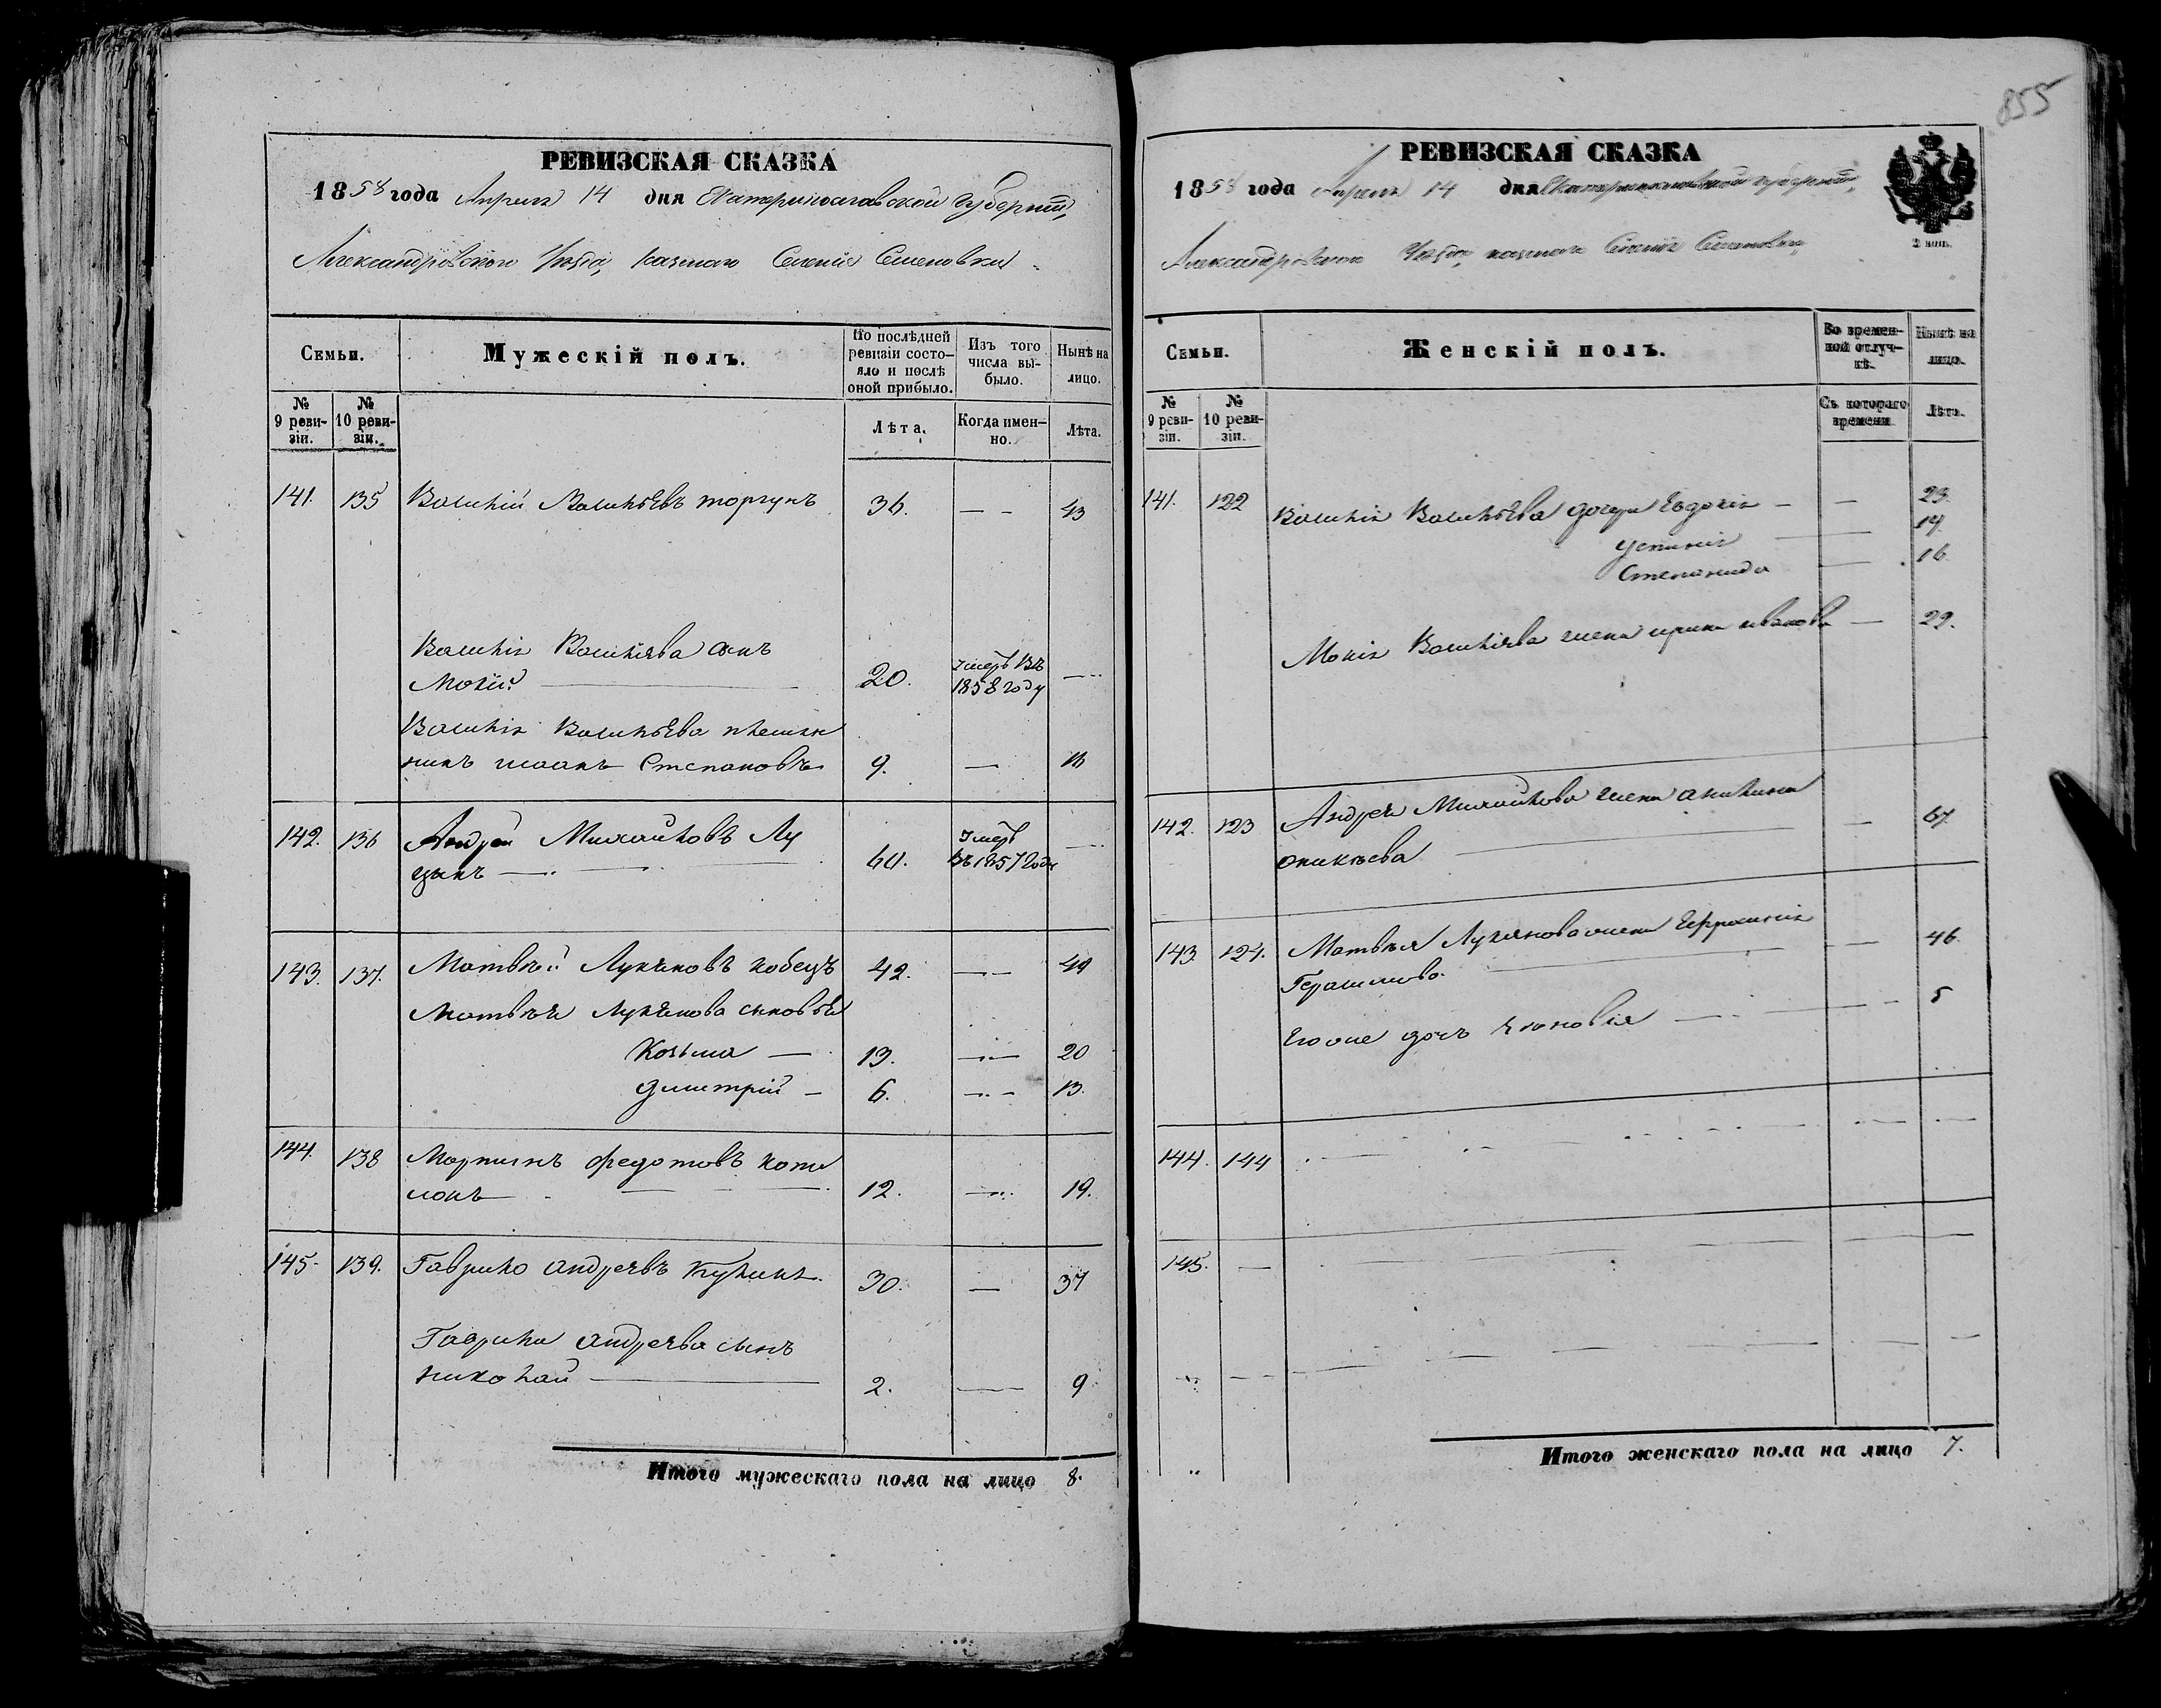 855
РЕВИЗСКАЯ СКАЗКА
1858 года Апреля 14 дня Екатеринославской губерніи,
Александровского Уезда, казенного Селенія Семеновки
Семьи.
Мужескій полъ.
По послѣдней ревизіи состо-
яло и послѣ
оной прибыло.
Изъ того
числа вы-
было.
Нынѣ на
лицо.
№
9 реви-
зіи.
№
10 реви-
зіи.
Лѣта.
Когда имен-
но.
Лѣта.
141. 135 Василій Васильевъ торгунъ 36. — — 43
Василія Васильева сынъ
Мокій 20. Умеръ въ 1858 году —
Василія Васильева племян
никъ Степановъ 9. — 16
142. 136 Андрей Михайловъ Лу
цыкъ 60. Умеръ въ 1857 году —
143. 137. Матвѣй Лукяновъ кобецъ 42. — 49
Матвѣя Лукянова сыновья
Козьма — 13. — 20
Дмитрій — 6. — 13.
144. 138 Мартынъ Федотовъ 12. — 19.
145. 139. Гаврило андреевъ 30. — 37
Гаврила андреева сынъ
николай 2. — 9
Итого мужескаго пола на лицо 8.
РЕВИЗСКАЯ СКАЗКА
1858 года Апреля 14 дня Екатеринославской губерніи,
Александровского Уезда, казенного Селенія Семеновки
2 коп.
Семьи.
Женскій полъ.
Во времен-
ной отлуч-
кѣ.
Нынѣ на
лицо.
№
9 реви-
зіи.
№
10 реви-
зіи.
Съ котораго
времени
Лѣта.
141. 122 Василія Васильева дочери Евдокія — — 23.
Устинія — 19.
Степанида — 16.
Мокія Васильева жена ирина иванова — 29.
142. 123 Андрея Михайлова жена акилина
оникѣева — 67
143. 124. Матвѣя Лукянова жена Ефросинія
Герасимова — 46.
Его же дочь — 5
144. 144 —
145. —
Итого женскаго пола на лицо 7.